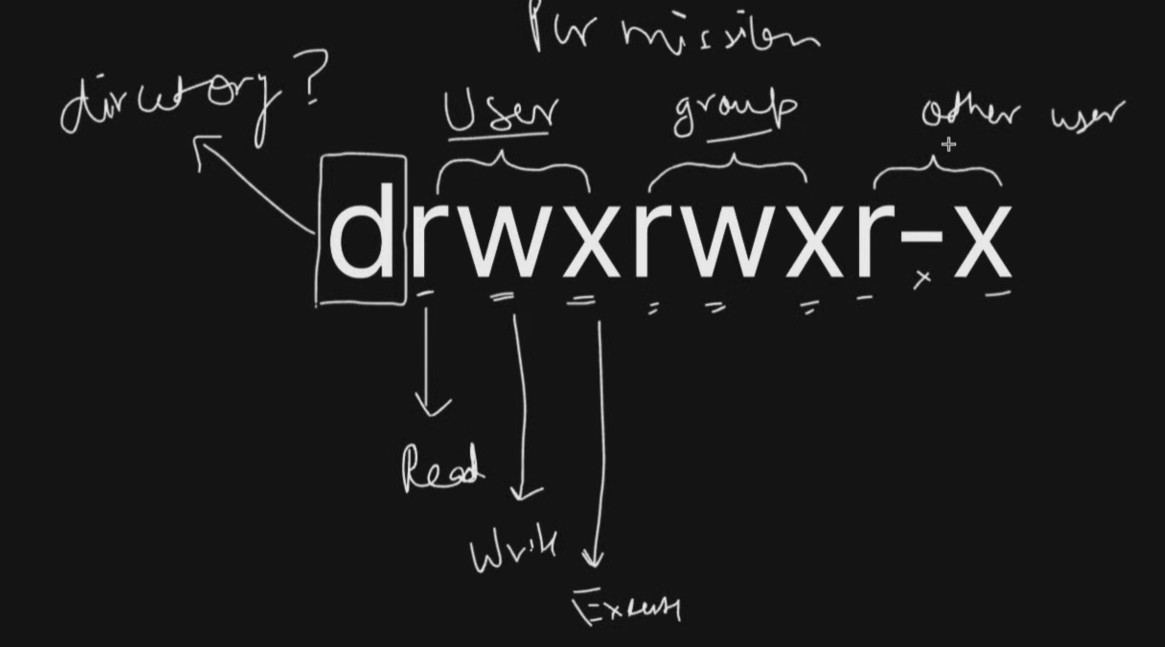 Permission
directory?
User group other user
drwxrwxr-x
Read
Write
Execute